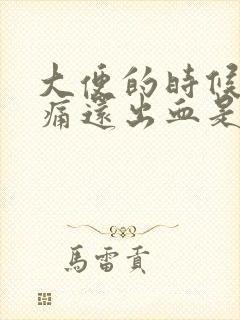 大便的時候
痛還出血是
馬雷貢